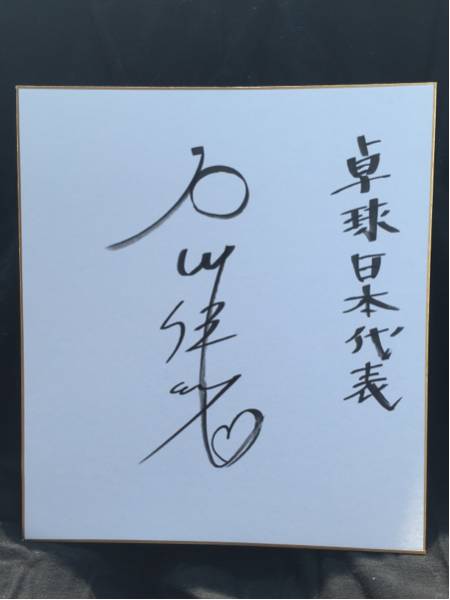 卓球日本代表
石川佳純